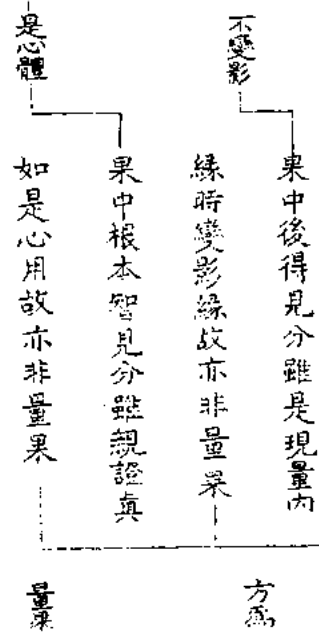 不變影
果中後得見分雖是現量內
緣時變影緣故亦非量果
方為
是心體
果中根本智見分雖親證真
如是心用故亦非量果
量果